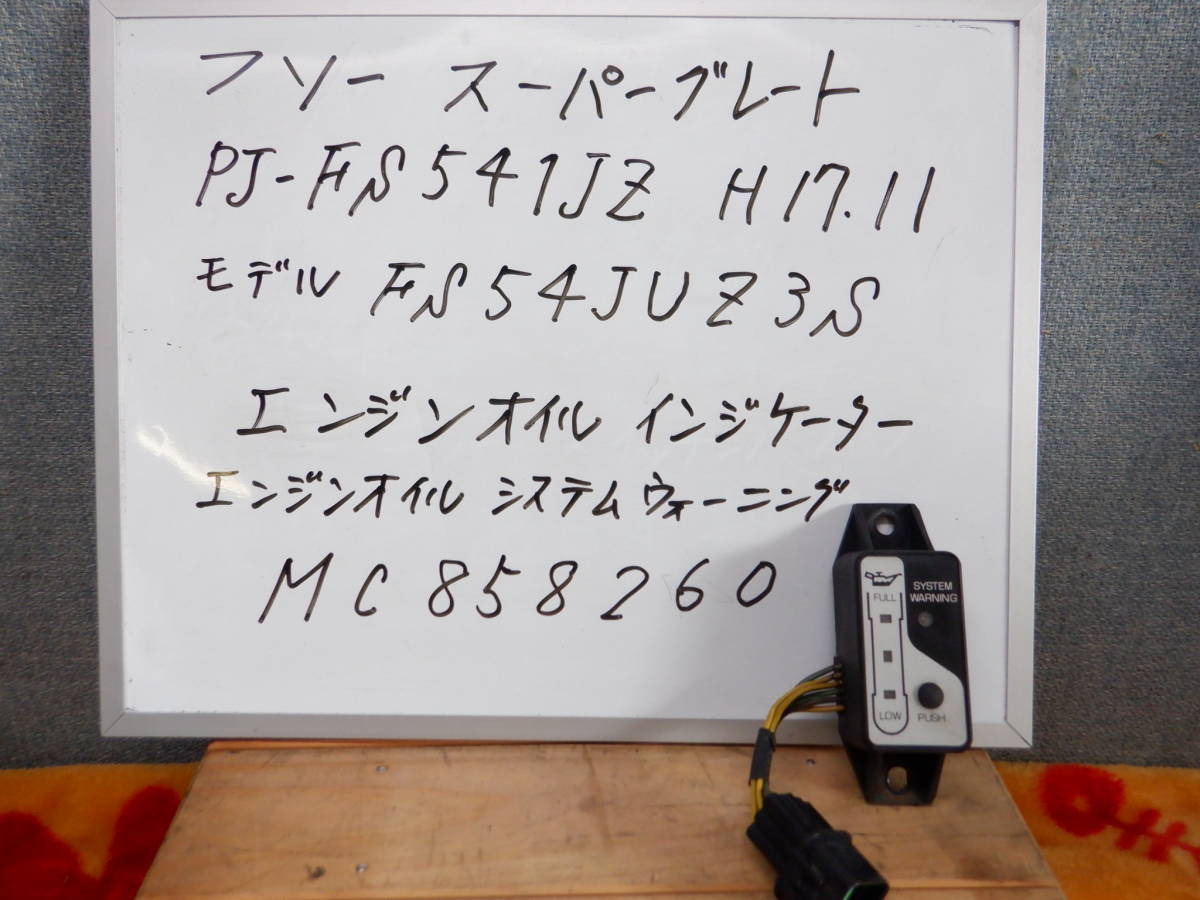 フソー スーパーグレート
PJ-FS541JZ H17.11
モデル FS54JUZ3S
エンジンオイル インジケーター
エンジンオイル システムウォーニング
MC858260
SYSTEM
WARNING
FULL
LOW
PUSH